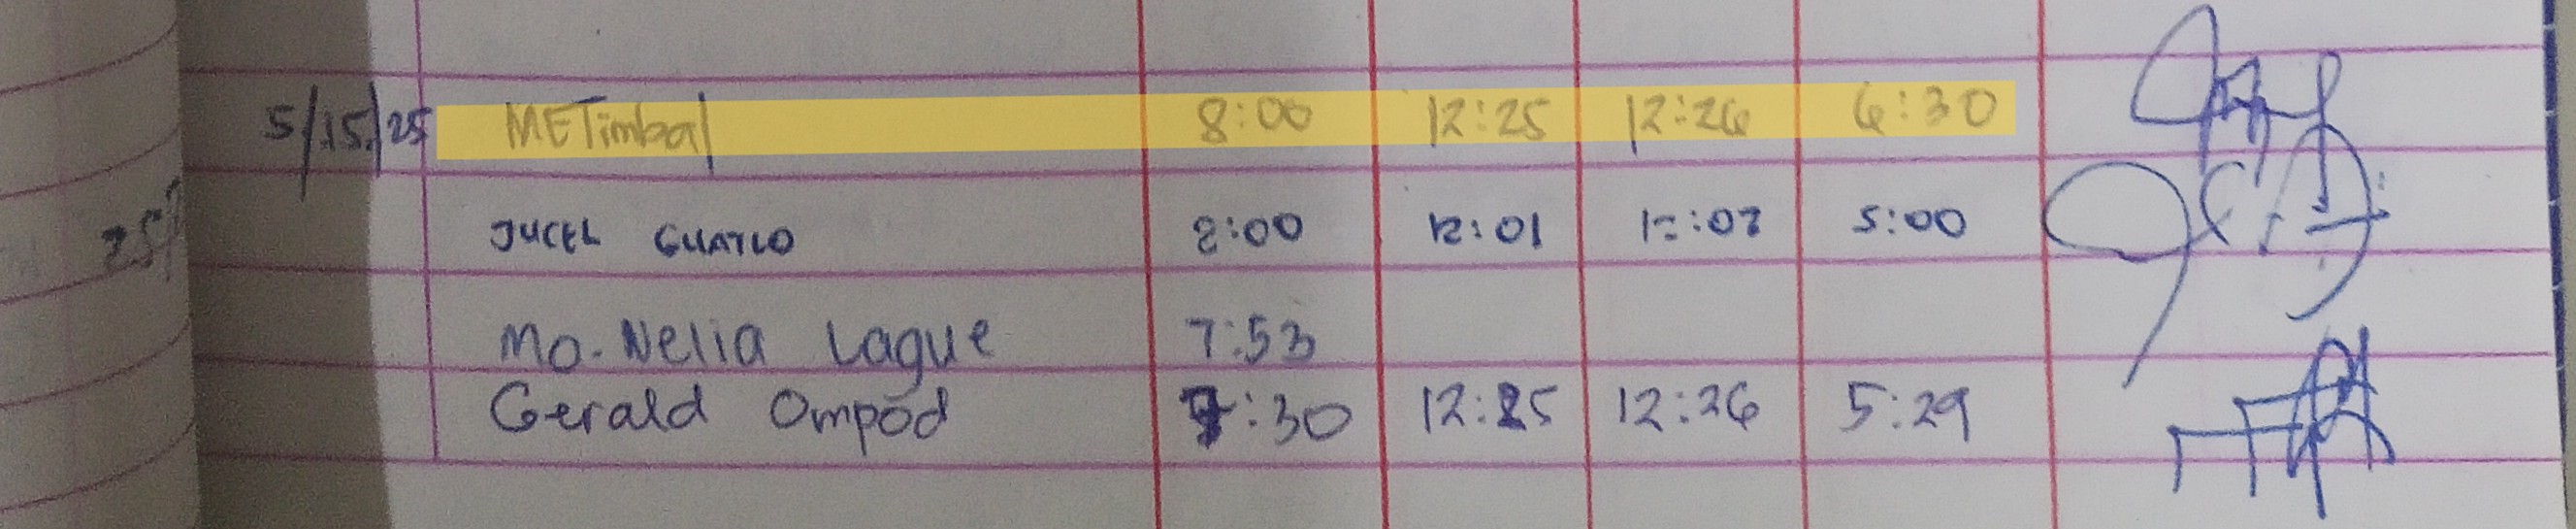 5/15/25 METimbal 8:00 12:25 12:26 6:30
JUCEL GUATLO 8:00 12:01 12:02 5:00
Ma. Nelia Lague 7:53
Gerald Ompod 7:30 12:25 12:26 5:29